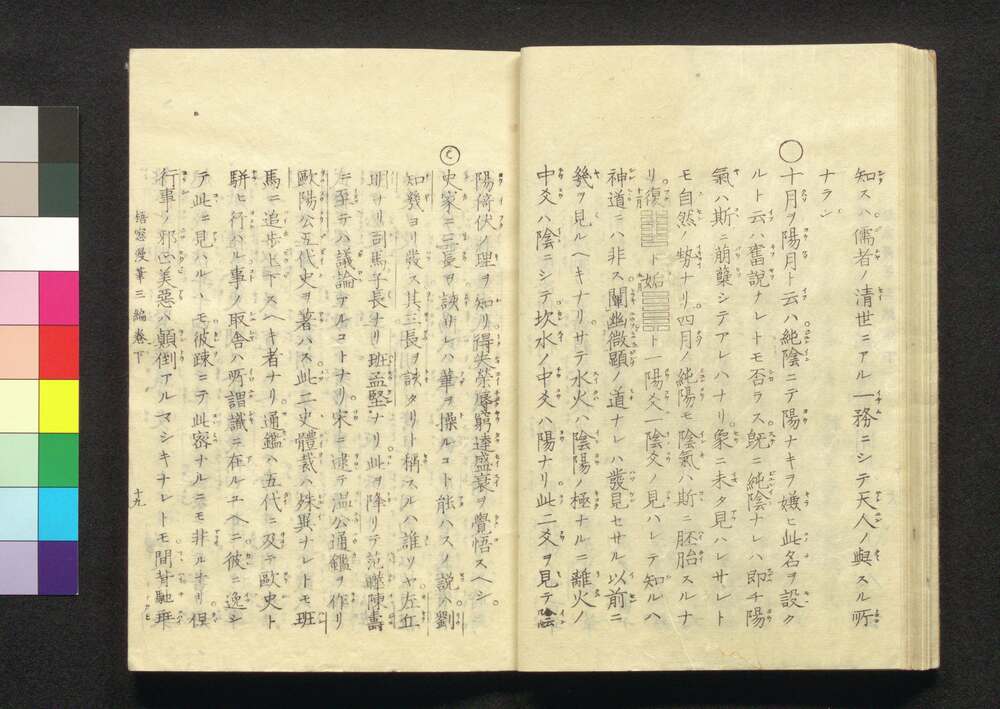 知スハ儒者ノ清世ニアル一務ニシテ天人ノ與スル所
ナラン
十月ヲ陽月ト云ハ純陰ニテ陽ナキヲ嫌ヒ此名ヲ設ク
ルト云ハ舊說ナレトモ否ラス旣ニ純陰ナレハ即チ陽
氣ハ斯ニ萠蘖シテアレハナリ象ニ未タ見ハレサレト
モ自然ノ勢ナリ四月ノ純陽モ陰氣ハ斯ニ胚胎スルナ
リ復ト姤ト一陽爻一陰爻ノ見ハレテ知ルハ
神道ニハ非ス闡幽微顯ノ道ナレハ發見セサル以前ニ
幾ヲ見ルヘキナリサテ水火ハ陰陽ノ極ナルニ離火ノ
中爻ハ陰ニシテ坎水ノ中爻ハ陽ナリ此二爻ヲ見テ陰
陽倚伏ノ理ヲ知リ得失榮辱窮達盛衰ヲ覺悟スヘシ
史家ニ三長ヲ談サレハ筆ヲ操ルコト能ハスノ說ハ劉
知幾ヨリ襲ス其三長ヲ談タリト稱スルハ誰ソヤ左丘
明ヨリ司馬子長ナリ班孟堅ナリ此ヲ降リテ范曄陳壽
ニ至テハ議論アルコトナリ宋ニ逮テ溫公通鑑ヲ作リ
歐陽公五代史ヲ著ハス此二史體裁ハ殊異ナレトモ班
馬ニ追步上下スヘキ者ナリ通鑑ハ五代ニ及テ歐史ト
駢ヒ行ハル事ノ取舍ハ所謂識ニ在ルユヘニ彼ニ逸シ
テ此ニ見ハルハモ彼疎ニテ此密ナルニモ非ルナリ但
行事ノ邪正美惡ハ顛倒アルマシキナレトモ間背馳乖
梧窓漫筆三編卷下
十九